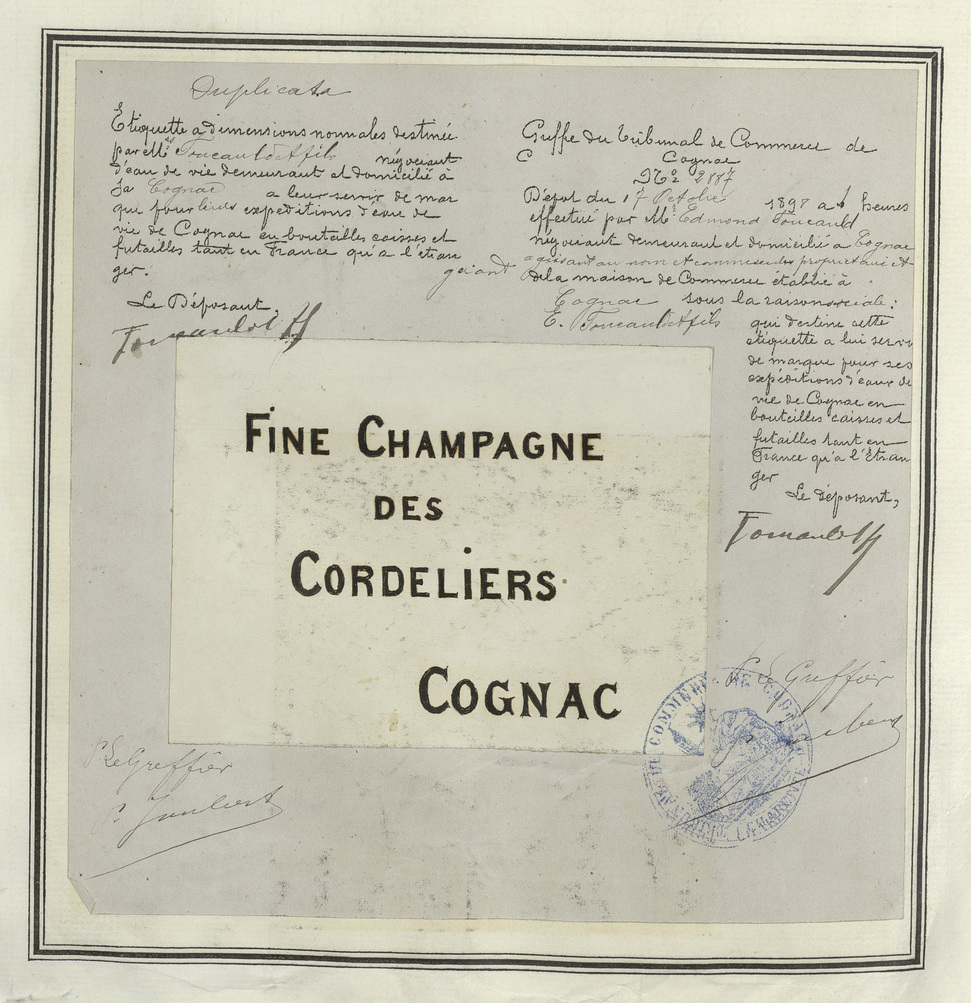 Duplicata
Etiquette a dimensions normales destinée
par M.rs Foucauld & fils négociant
d'eau de vie demeurant et domicilié à
Ja Cognac a leur servir de mar
que pour leurs expeditions d'eau de
vie de Cognac en bouteilles caisses et
futailles tant en France qu'a l'étran
ger.
Le Déposant,
Foucauld ff
Greffe du Tribunal de Commerce de
C Cognac
No 2887
Dépot du 17 Octobre 1898 a 4 heures
effectué par M.r Edmond Foucauld
négociant demeurant et domicilié a Cognac
agissant au nom et comme proprietaire et
gérant de la maison de Commerce établie à
Cognac sous la raison sociale:
E. Foucauld & fils qui destine cette
étiquette a lui servir
de marque pour ses
expéditions d'eaux de
vie de Cognac en
bouteilles caisses et
futailles tant en
France qu'a l'étran
ger
Le Déposant,
Foucauld ff
FINE CHAMPAGNE
DES
CORDELIERS
COGNAC
P. Le Greffier
P. Le Greffier
P. Joubert
DE COMMERCE DE COGNAC